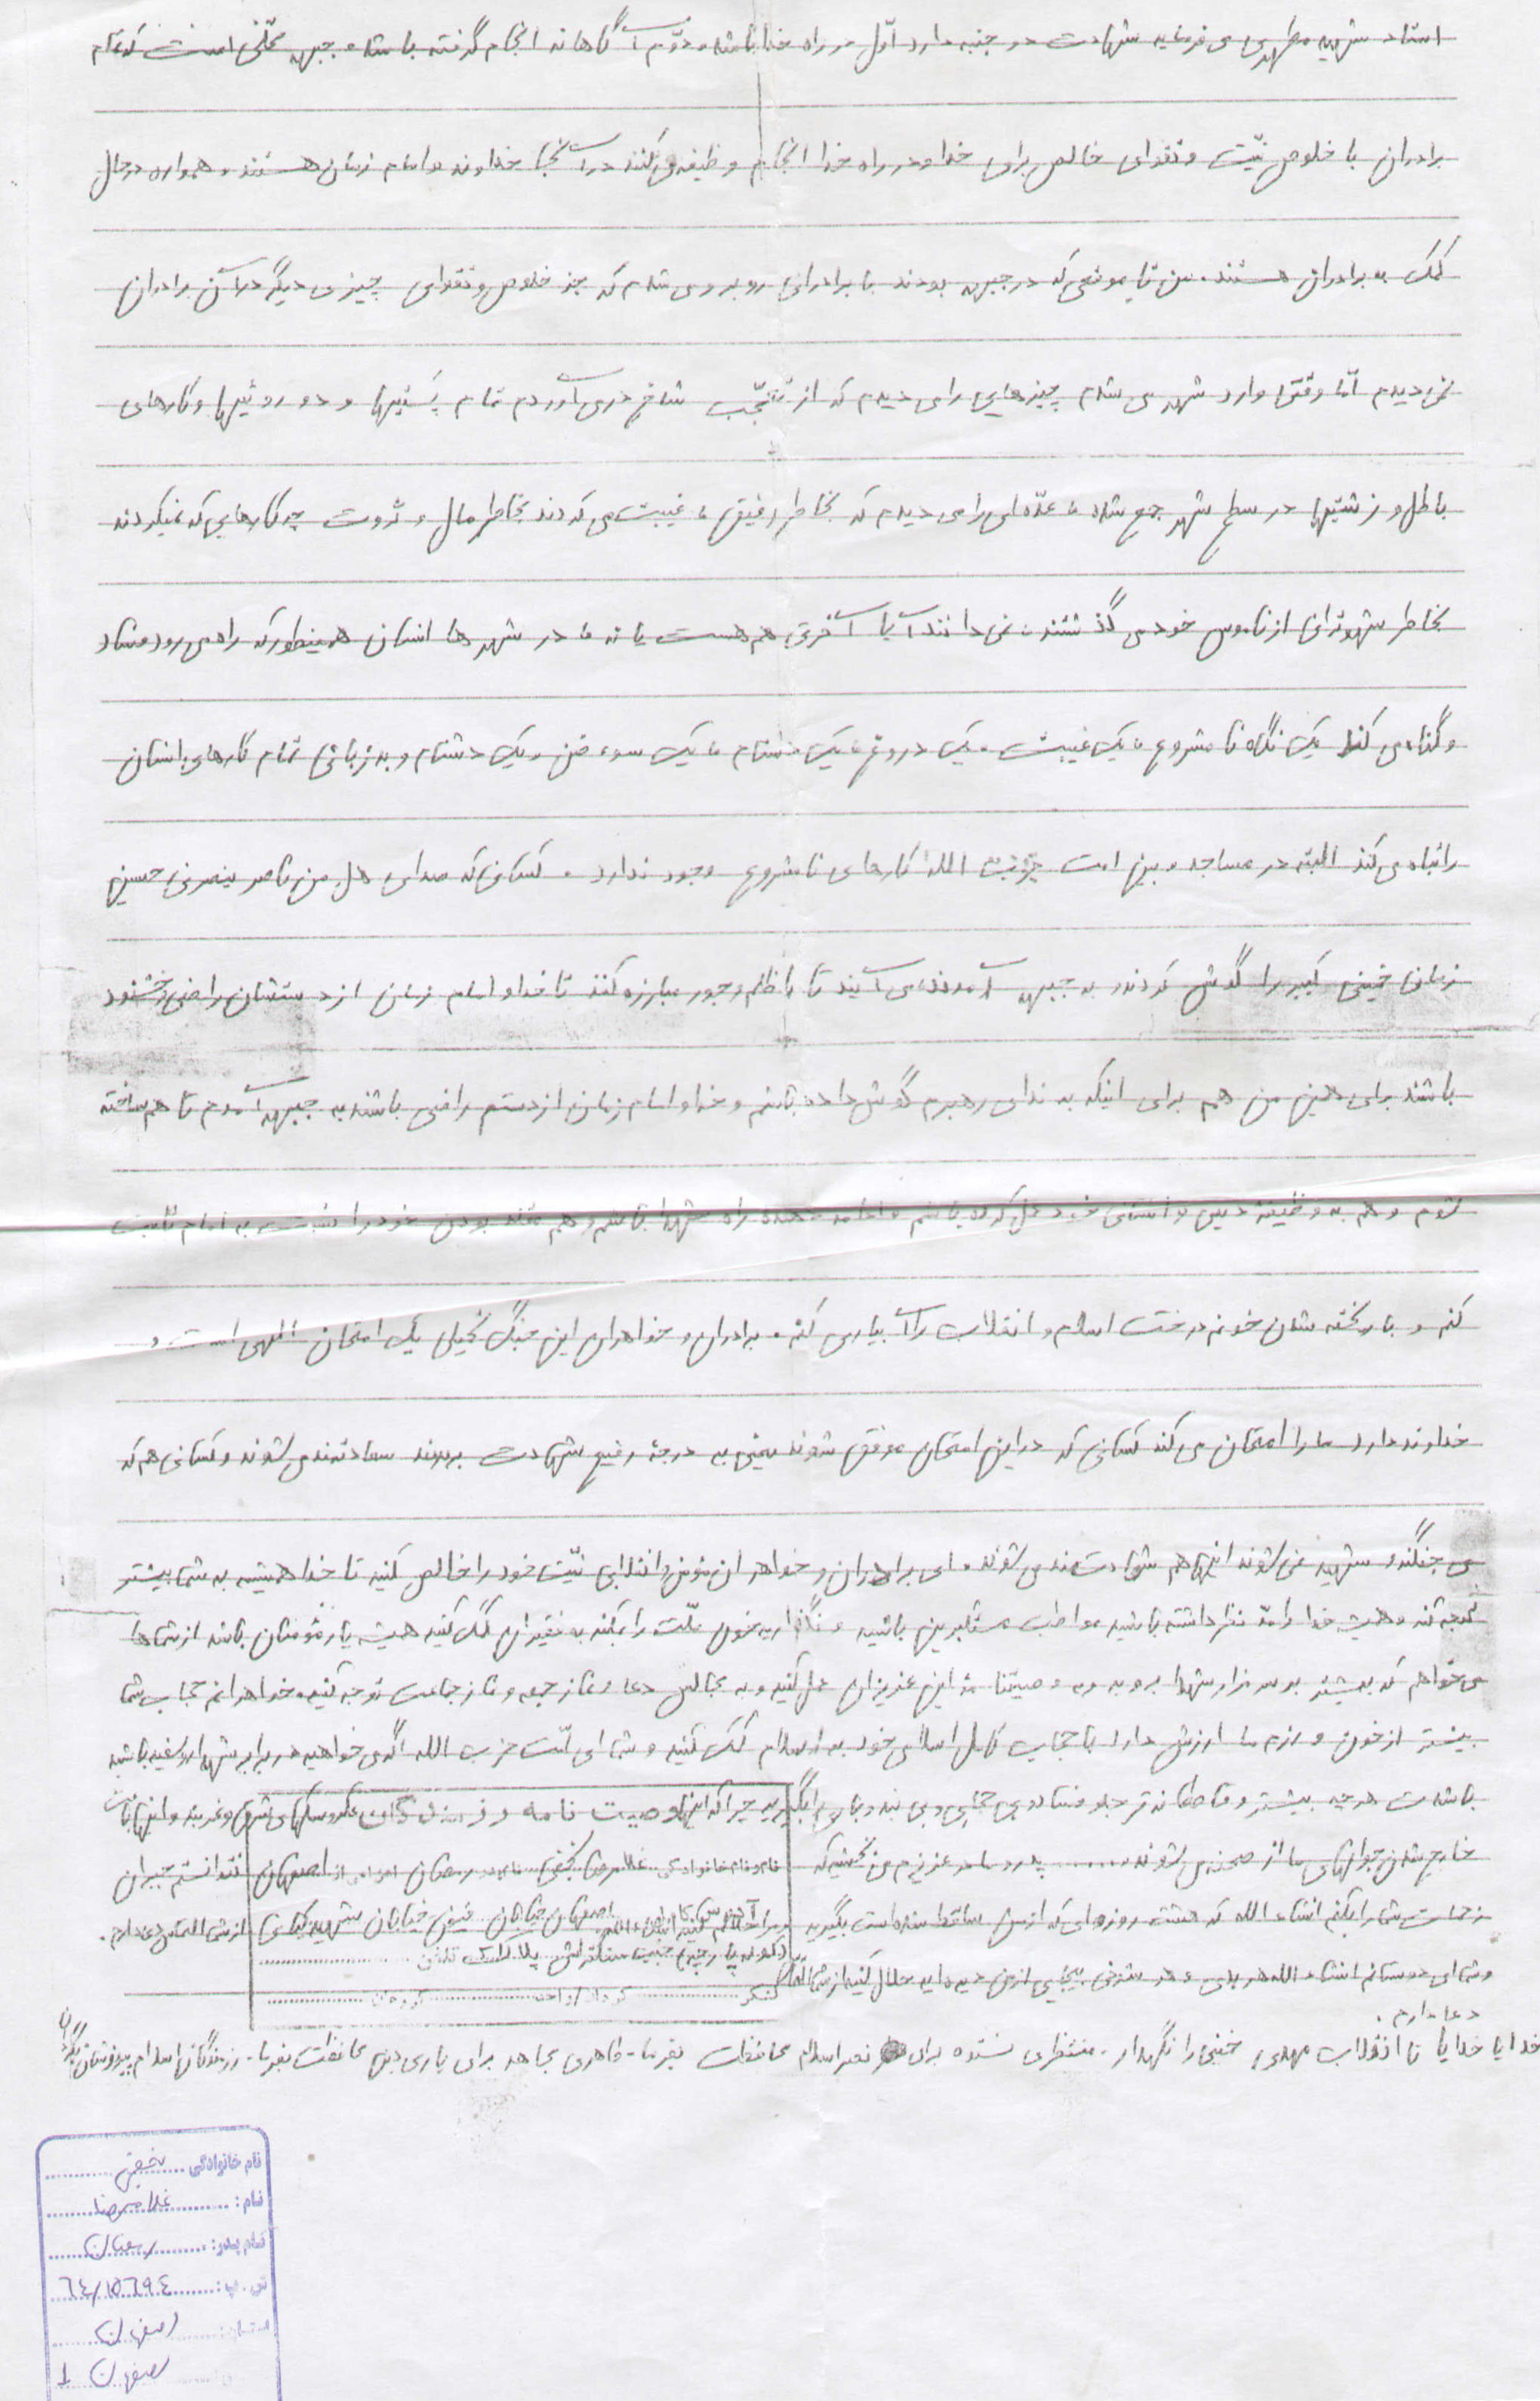 استاد شهید مطهری می فرماید شهادت دو جنبه دارد اوّل در راه خدا باشد و دوّم آگاهانه انجام گرفته باشد و جبهه محلّی است که تمام
برادران با خلوص نیّت و تقوای خالص برای خدا و در راه خدا انجام وظیفه می کنند در آنجا خداوند و امام زمان هستند و همواره در حال
کمک به برادران هستند. من تا موقعی که در جبهه بودند با برادرانی روبروی شدم که بجز خلوص و تقوای چیزی دیگر در آن برادران
نمی دیدم امّا وقتی وارد شهر می شدم چیزهایی را می دیدم که از تعجّب شاخ در می آوردم تمام پستیها و دوروئیها و کارهای
باطل و زشتیها در سطح شهر جمع شده ، عدّه ای را می دیدم که بخاطر رفیق ، غیبت می کردند بخاطر مال و ثروت چه کارهایی که نمیکردند
بخاطر شهوترانی از ناموس خود می گذشتند ، نمی دانند آیا آخرتی هم هست یا نه ، در شهرها انسان همینطور که راه می رود فساد
و گناه می کند یک نگاه نامشروع ، یک غیبت ، یک دروغ ، یک دشنام ، یک سوء ظن و یک دشنام و بدزبانی تمام کارهای انسان
را تباه می کند البته در مساجد و بین امت حزب الله کارهای نامشروع وجود ندارد . کسانی که صدای هل من ناصر ینصرنی حسین
زمان خمینی کبیر را گوش کردند به جبهه آمدند می آیند تا با ظلم و جور مبارزه کنند تا خدا و امام زمان از دستشان راضی و خشنود
باشند برای همین من هم برای اینکه به ندای رهبرم گوش داده باشم و خدا و امام زمان از دستم راضی باشند به جبهه آمدم تا هم ساخته
شوم و هم به وظیفه دینی و انسانی خود عمل کرده باشم و ادامه دهنده راه شهدا باشم و هم مقلد بودن خود را نسبت به امام ثابت
کنم و با ریخته شدن خونم درخت اسلام و انقلاب را آبیاری کنم . برادران و خواهران این جنگ تحمیلی یک امتحان الهی است و
خداوند دارد ما را امتحان می کند کسانی که در این امتحان موفق شوند یعنی به درجۀ رفیع شهادت برسند سعادتمند می شوند و کسانی هم که
می جنگند و شهید نمی شوند اینها هم سعادتمند می شوند . ای برادران و خواهران مؤمن و انقلابی نیّت خود را خالص کنید تا خدا همیشه به شما بیشتر
توجه کند و همیشه خدا را مدّ نظر داشته باشید مواظب مستکبرین باشید و نگذارید خون ملّت را بمکند به فقیران کمک کنید همیشه یار مؤمنان باشد از شماها
می خواهم که بیشتر بر سر مزار شهدا بروید و به وصیتنامۀ این عزیزان عمل کنید و به مجالس دعا و نماز جمعه و نماز جماعت توجه کنید . خواهرانم حجاب شما
بیشتر از خون و رزم ما ارزش دارد با حجاب کامل اسلامی خود به اسلام کمک کنید و شما ای ملّت حزب الله اگر می خواهید در برابر شهدا رو سفید باشید
باشدت هر چه بیشتر و قاطعانه تر جلو فساد و بی حجابی و بی بندوباری را بگیرید چرا که اینها عروسکهای شرق و غربند و اینها باعث
خارج شدن جوانهای ما از صحنه می شوند ...... پدر و مادر عزیزم می بخشید که نتوانستم جبران
زحمات شما را بکنم انشاء الله که هشت روزه ای که از من ساقط شده است بگیرید مرا حلالم کنید انشاء الله از شما التماس دعا دارم .
و شما ای دوستانم انشاء الله هر بدی و هر شوخی بیجایی از من دیده اید حلال کنید از شما التماس
دعا دارم .
خدایا خدایا تا انقلاب مهدی خمینی را نگهدار . منتظری نستوه برای نصر اسلام محافظت بفرما - طاهری مجاهد برای یاری دین محافظت بفرما - رزمندگان اسلام پیروزشان بگردان
وصیت نامه رزمندگان
نام و نام خانوادگی غلامرضا نجفی نام پدر رمضان اعزامی از اصفهان
آدرس کامل اصفهان خیابان فیض خیابان شهید
تلفن
لشکر گردان/واحد گروهان
نام خانوادگی نجفی
نام : غلامرضا
نام پدر : رمضان
ش . پ : ٦٤/١٥٦٩٤
استان : اصفهان
اصفهان ١